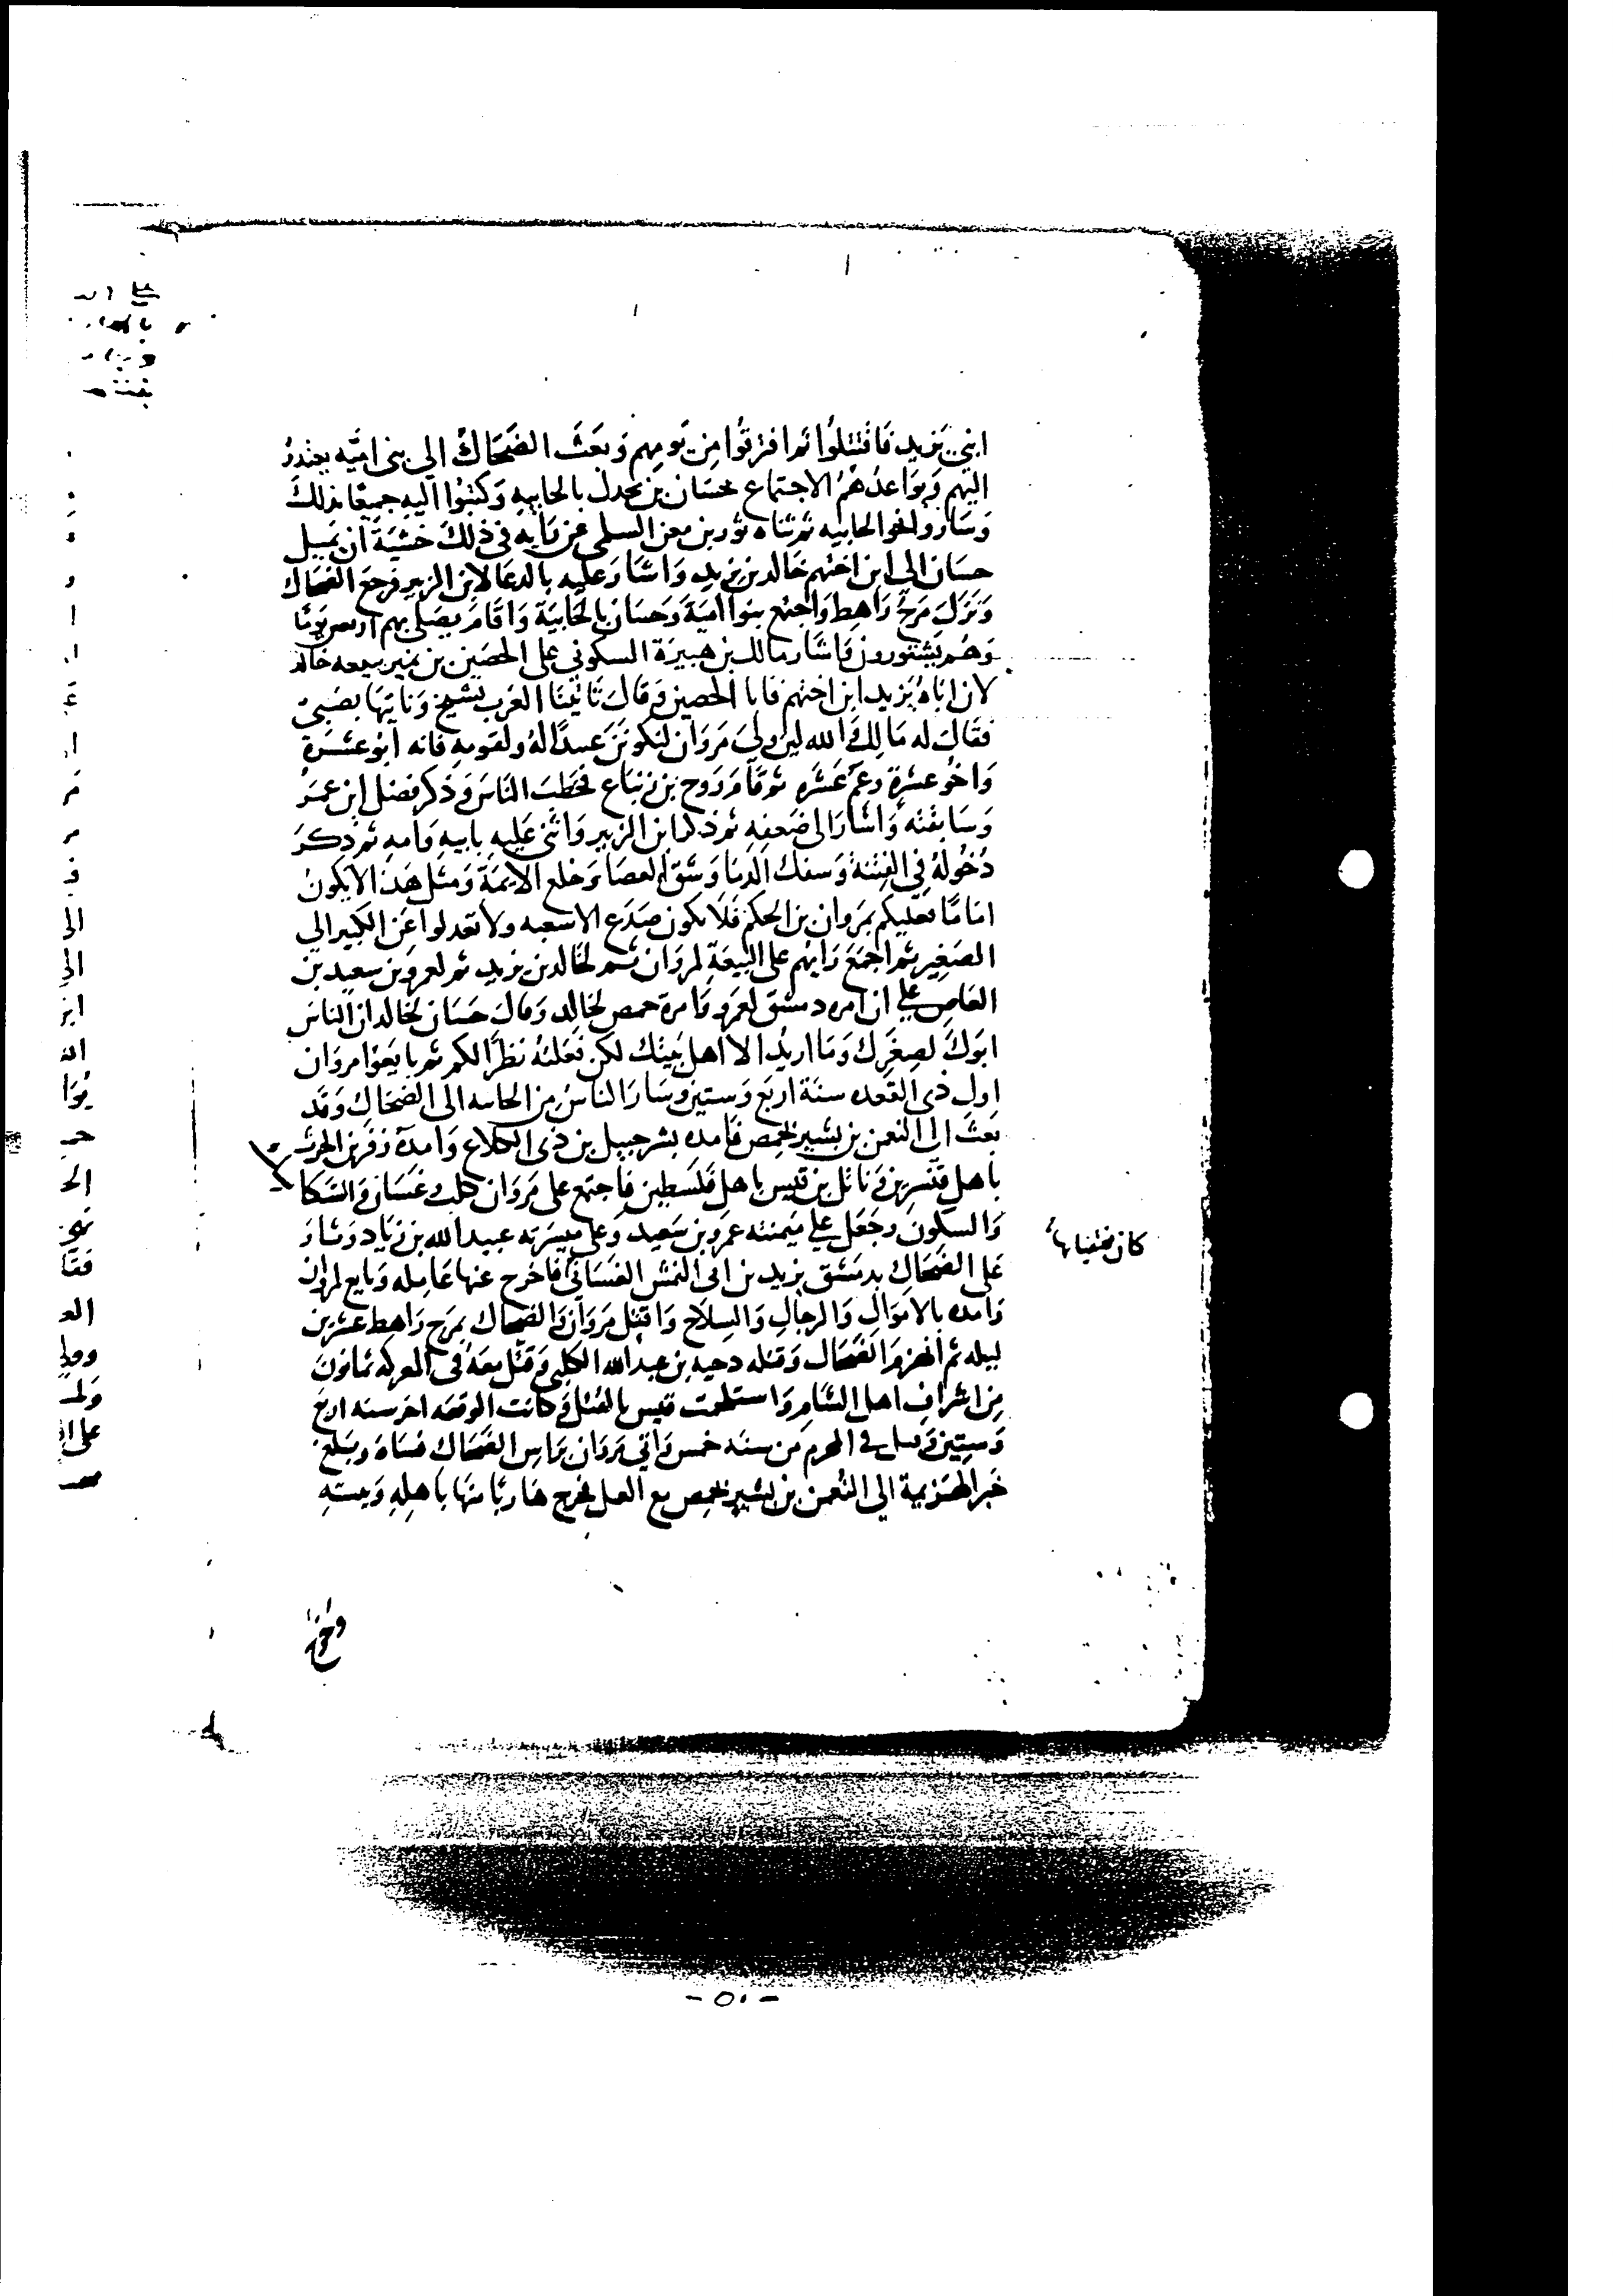 ابن يزيد فاقتتلوا ثم افترقوا من يومهم وبعث الضحاك الى بنى اميه يعتذر
اليهم ويواعدهم الاجتماع بحسان بن بحدل بالجابيه وكتبوا اليه جميعا بذلك
وساروا نحو الجابيه ثم ثناه ثور بن معن السلمى عن رايه فى ذلك خشية ان يميل
حسان الى ابن اختهم خالد بن يزيد واشار عليه بالدعا لابن الزبير فرجع الضحاك
ونزل مرج راهط واجتمع بنوا امية وحسان بالجابية واقام يصلى بهم اربعين يوما
وهم يشتورون فاشار مالك بن هبيرة السكونى على الحصين بن نمير ببيعه خالد
لان اباه يزيد ابن اختهم فابا الحصين وقال تاتينا العرب بشيخ وناتيها بصبى
فقال له مالك والله لين ولى مروان لتكونن عبيدا له ولقومه فانه ابو عشرة
واخو عشرة وعم عشره ثم قام روح بن زنباع فخطب الناس وذكر فضل ابن عمر
وسابقته واشار الى ضعفه ثم ذكر ابن الزبير واثنى عليه بابيه وامه ثم ذكر
دخوله فى الفتنة وسفك الدما وشق العصا وخلع الايمة ومثل هذا لا يكون
اماما فعليكم بمروان بن الحكم فلا يكون صدع الا شعبه ولا تعدلوا عن الكبير الى
الصغير ثم اجمع رايهم على البيعة لمروان ثم لخالد بن يزيد ثم لعمرو بن سعيد بن
العاص على ان امره دمشق لعمرو وامرة حمص لخالد وقال حسان لخالد ان الناس
ابوك لصغرك وما اريد الا اهل بيتك لكن فعلته نظرا لكم ثم بايعوا مروان
اول ذى القعده سنة اربع وستين وسار الناس من الجابيه الى الضحاك وقد
بعث الى النعمن بن بشير بحمص فامده بشرحبيل بن ذى الكلاع وامده زفر بن الحرث
باهل قنسرين وناتل بن قيس باهل فلسطين فاجتمع على مروان كلب وغسان والسكا
والسكون وجعل على ميمنته عمرو بن سعيد وعلى ميسرته عبيد الله بن زياد وثار
على الضحاك بدمشق يزيد بن ابى النمش الغسانى فاخرج عنها عامله وبايع لمروان
كان مختفيا بها
وامده بالاموال والرجال والسلاح واقتتل مروان والضحاك بمرج راهط عشرين
ليله ثم انهزم الضحاك وقتله دحيه بن عبد الله الكلبى وقتل معه فى المعركه ثمانون
من اشراف اهل الشام واستلحمت قيس بالقتل وكانت الوقعه اخر سنه اربع
وستين وقيل فى المحرم من سنه خمس واتى مروان براس الضحاك فساه وبلغ
خبر الهزيمة الى النعمن بن بشير بحمص مع الفل فخرج هاربا منها باهله
- ٥٠ -